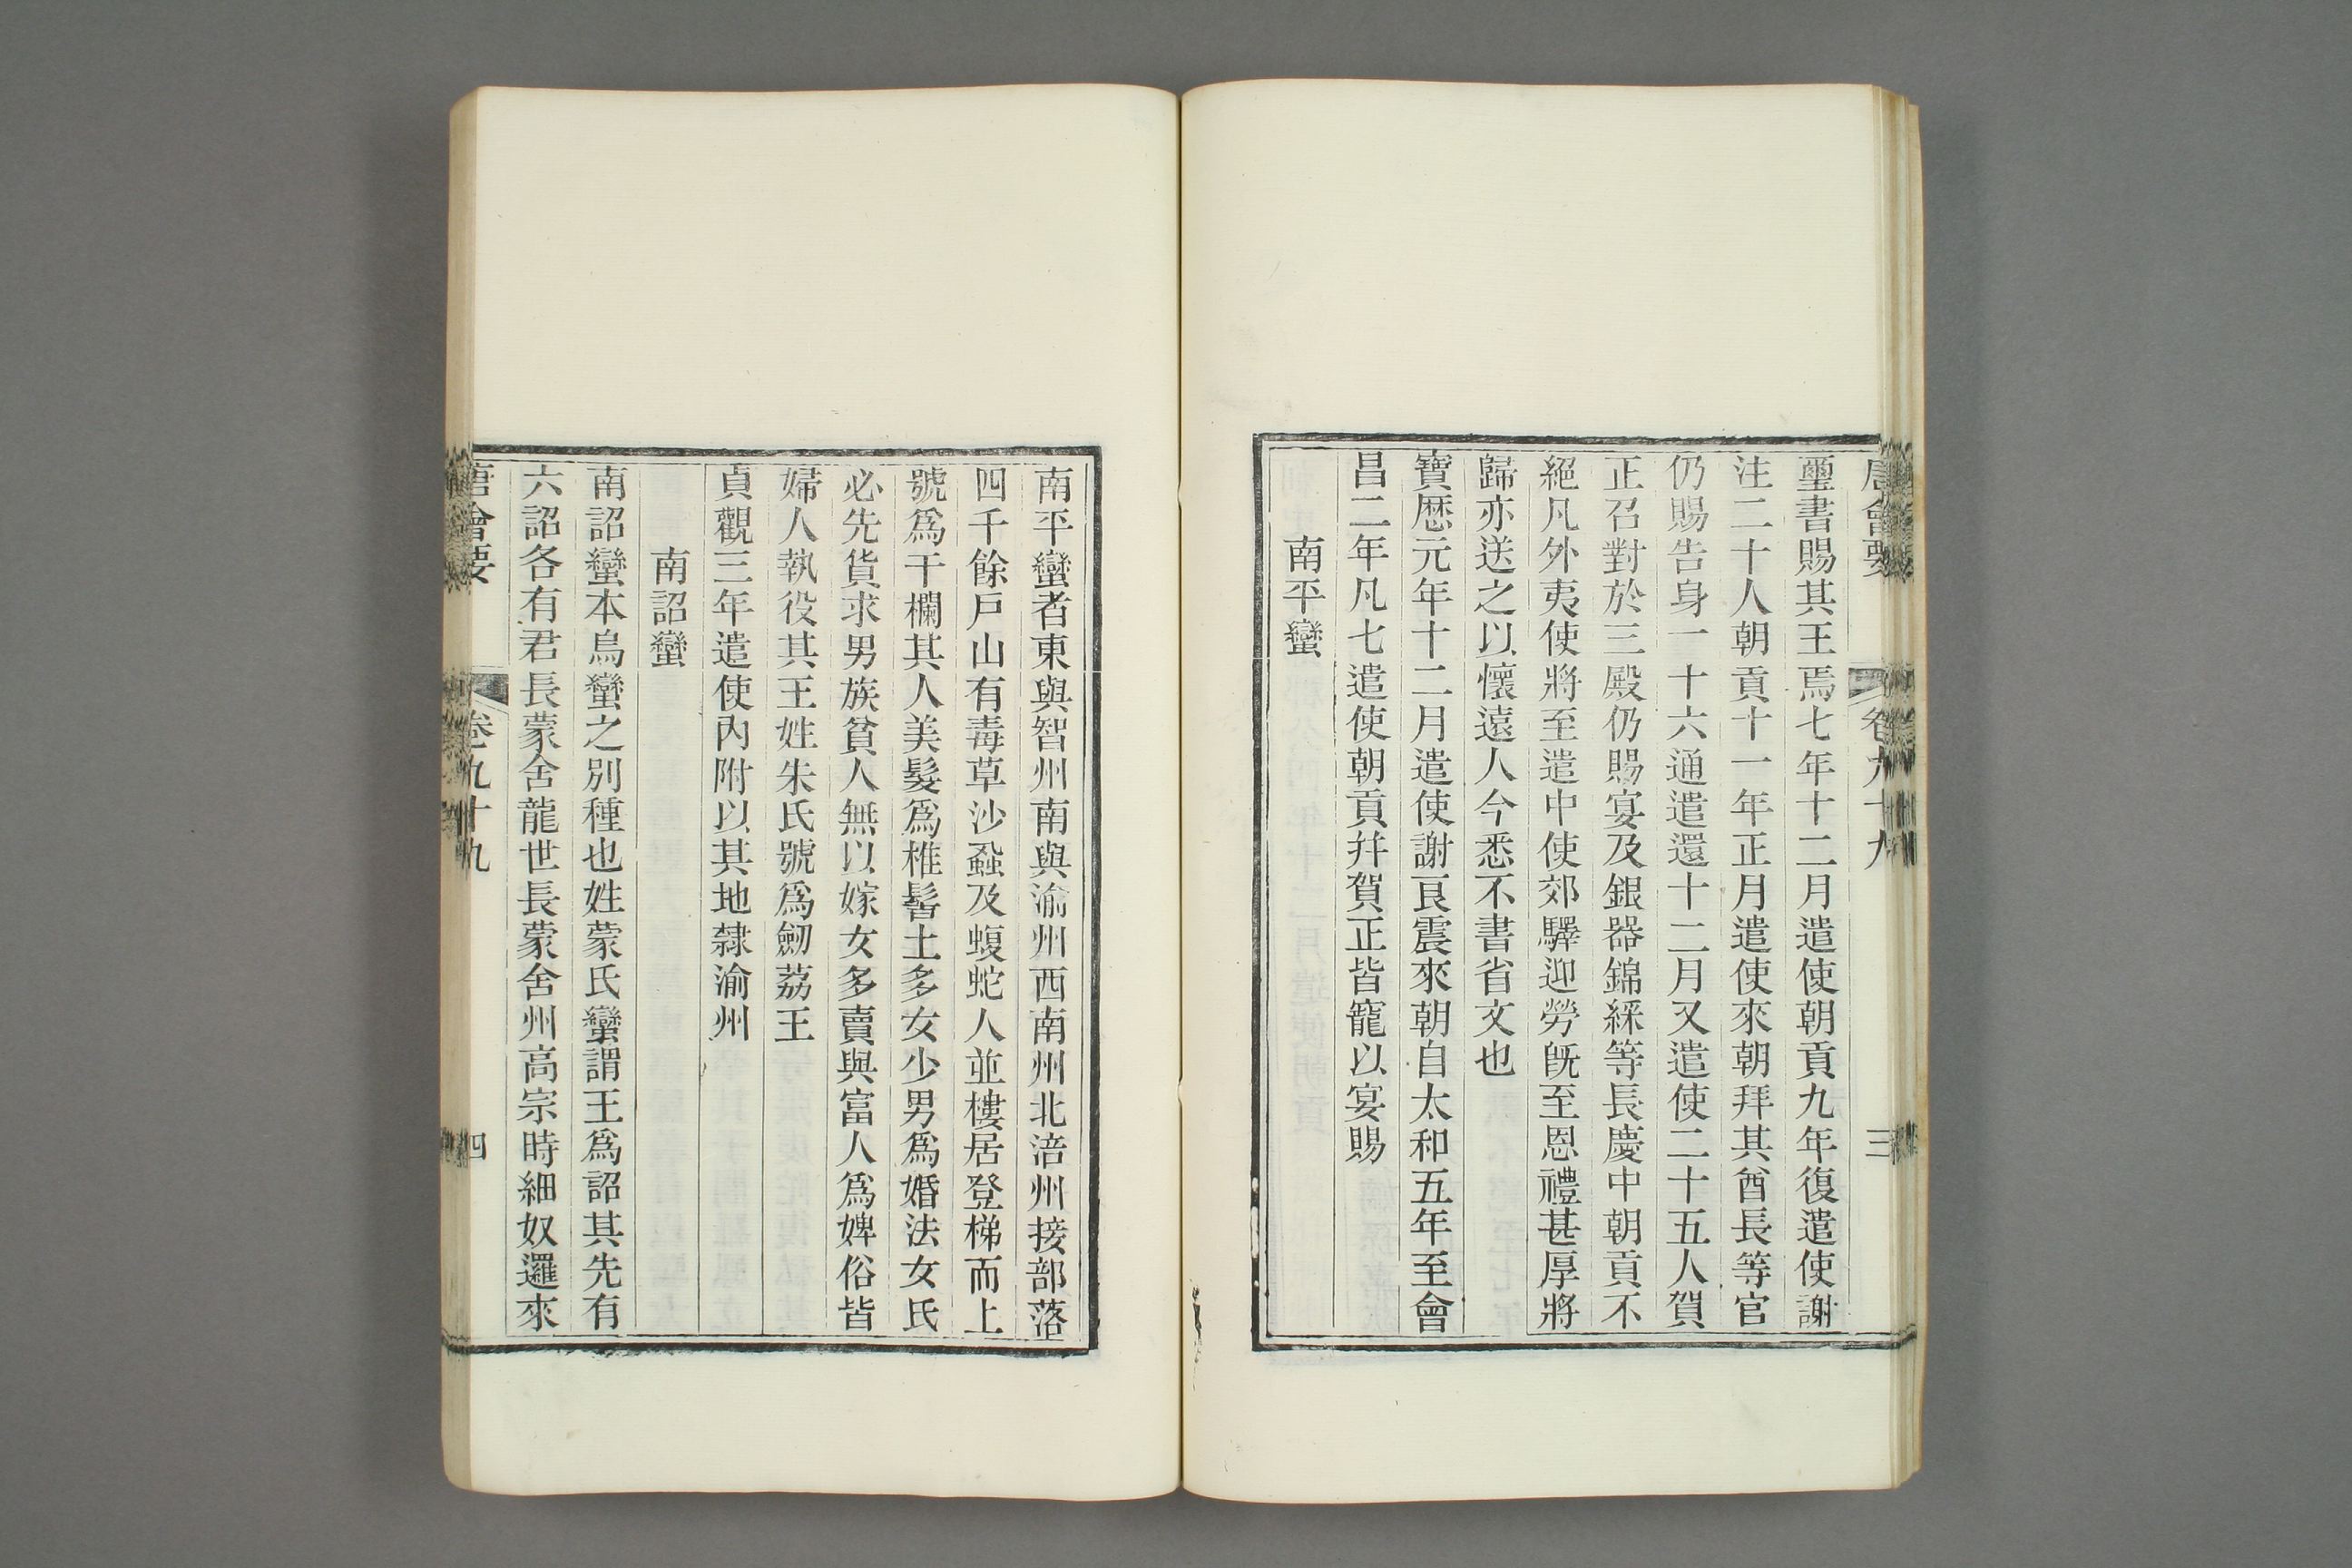 唐會要 卷九十九 三
璽書賜其王焉七年十二月遣使朝貢九年復遣使謝
注二十人朝貢十一年正月遣使來朝拜其酋長等官
仍賜告身一十六通遣還十二月又遣使二十五人賀
正召對於三殿仍賜宴及銀器錦綵等長慶中朝貢不
絕凡外夷使將至遣中使郊驛迎勞旣至恩禮甚厚將
歸亦送之以懷遠人今悉不書省文也
寶歷元年十二月遣使謝良震來朝自太和五年至會
昌二年凡七遣使朝貢幷賀正皆寵以宴賜
南平蠻
南平蠻者東與智州南與渝州西南州北涪州接部落
四千餘戶山有毒草沙蝨及蝮蛇人並樓居登梯而上
號爲干欄其人美髮爲椎髻土多女少男爲婚法女氏
必先貨求男族貧人無以嫁女多賣與富人爲婢俗皆
婦人執役其王姓朱氏號爲劒荔王
貞觀三年遣使內附以其地隸渝州
南詔蠻
南詔蠻本烏蠻之別種也姓蒙氏蠻謂王爲詔其先有
六詔各有君長蒙舍龍世長蒙舍州高宗時細奴邏來
唐會要 卷九十九 四